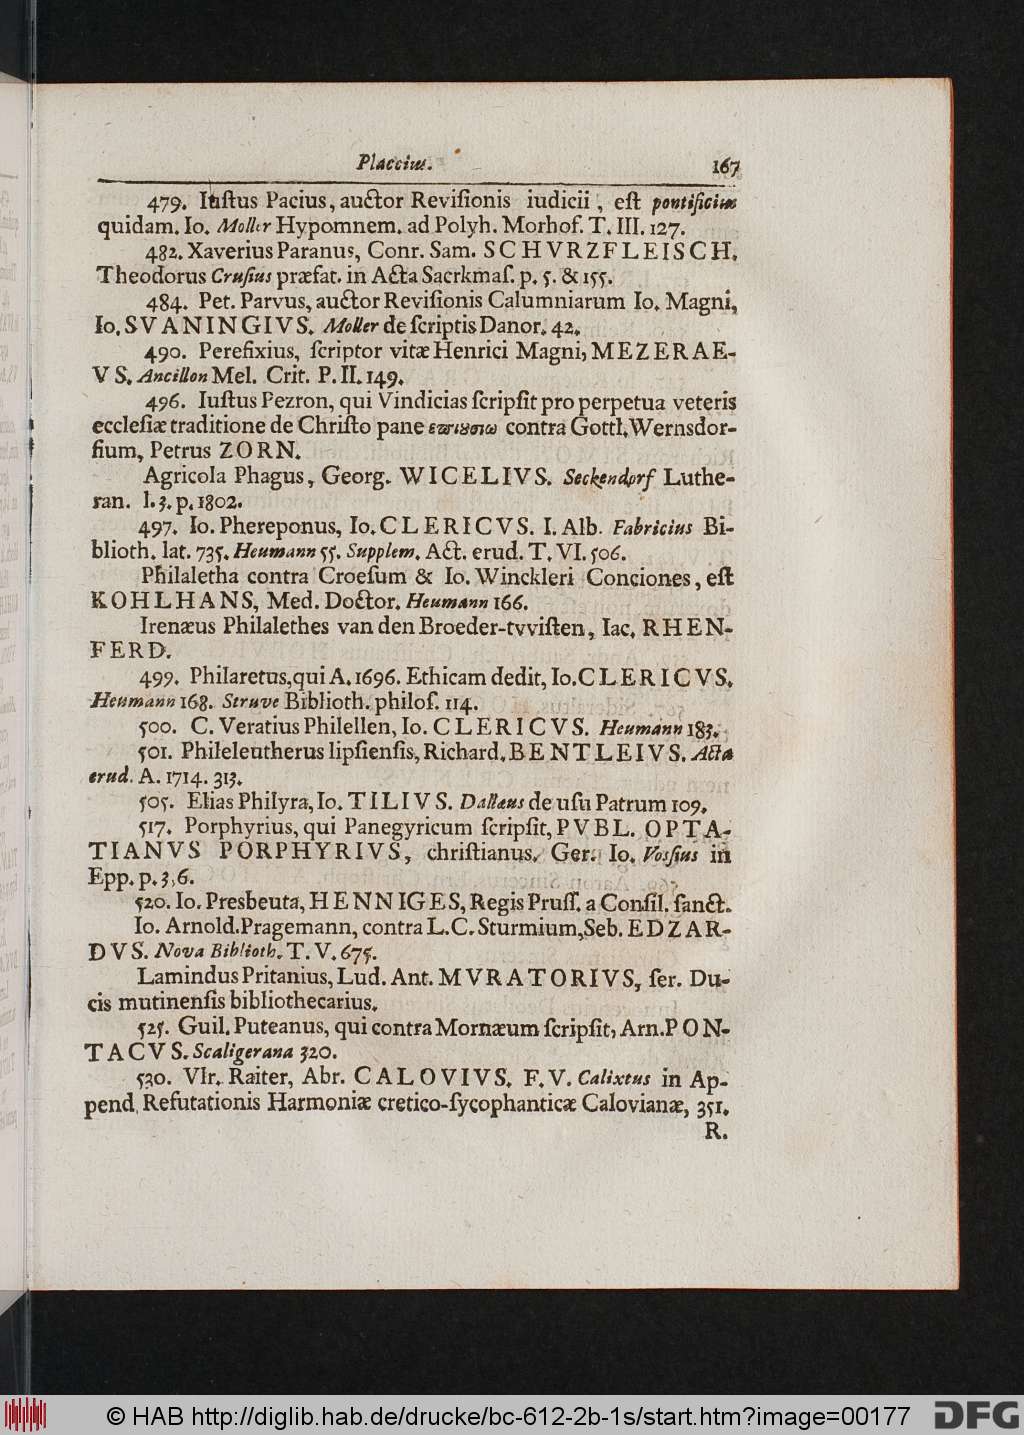 Placcius. 167
479. Iuſtus Pacius, auctor Reviſionis iudicii, eſt pontificius
quidam. Io. Moller Hypomnem. ad Polyh. Morhof. T. III. 127.
482. Xaverius Paranus, Conr. Sam. SCHVRZFLEISCH.
Theodorus Cruſius præfat. in Acta Sacrkmaſ. p. 5. & 155.
484. Pet. Parvus, auctor Reviſionis Calumniarum Io. Magni,
Io. SVANINGIVS. Moller de ſcriptis Danor. 42.
490. Perefixius, ſcriptor vitæ Henrici Magni, MEZERAE-
VS. Ancillon Mel. Crit. P. II. 149.
496. Iuſtus Pezron, qui Vindicias ſcripſit pro perpetua veteris
eccleſiæ traditione de Chriſto pane επιουσιω contra Gottl. Wernsdor-
fium, Petrus ZORN.
Agricola Phagus, Georg. WICELIVS. Seckendorf Luthe-
ran. l. 3. p. 1802.
497. Io. Phereponus, Io. CLERICVS. I. Alb. Fabricius Bi-
blioth. lat. 735. Heumann 55. Supplem. Act. erud. T. VI. 506.
Philaletha contra Croeſum & Io. Winckleri Conciones, eſt
KOHLHANS, Med. Doctor. Heumann 166.
Irenæus Philalethes van den Broeder-tvviſten, Iac. RHEN-
FERD.
499. Philaretus, qui A. 1696. Ethicam dedit, Io. CLERICVS.
Heumann 168. Struve Biblioth. philoſ. 114.
500. C. Veratius Philellen, Io. CLERICVS. Heumann 183.
501. Phileleutherus lipſienſis, Richard. BENTLEIVS. Acta
erud. A. 1714. 313.
505. Elias Philyra, Io. TILIVS. Dallæus de uſu Patrum 109.
517. Porphyrius, qui Panegyricum ſcripſit, PVBL. OPTA-
TIANVS PORPHYRIVS, chriſtianus. Ger. Io. Voſſius in
Epp. p. 3,6.
520. Io. Presbeuta, HENNIGES, Regis Pruſſ. a Conſil. ſanct.
Io. Arnold. Pragemann, contra L. C. Sturmium, Seb. EDZAR-
DVS. Nova Biblioth. T. V. 675.
Lamindus Pritanius, Lud. Ant. MVRATORIVS, ſer. Du-
cis mutinenſis bibliothecarius.
525. Guil. Puteanus, qui contra Mornæum ſcripſit, Arn. PON-
TACVS. Scaligerana 320.
530. Vlr. Raiter, Abr. CALOVIVS. F. V. Calixtus in Ap-
pend. Refutationis Harmoniæ cretico-ſycophanticæ Calovianæ, 351.
R.
© HAB http://diglib.hab.de/drucke/bc-612-2b-1s/start.htm?image=00177
DFG